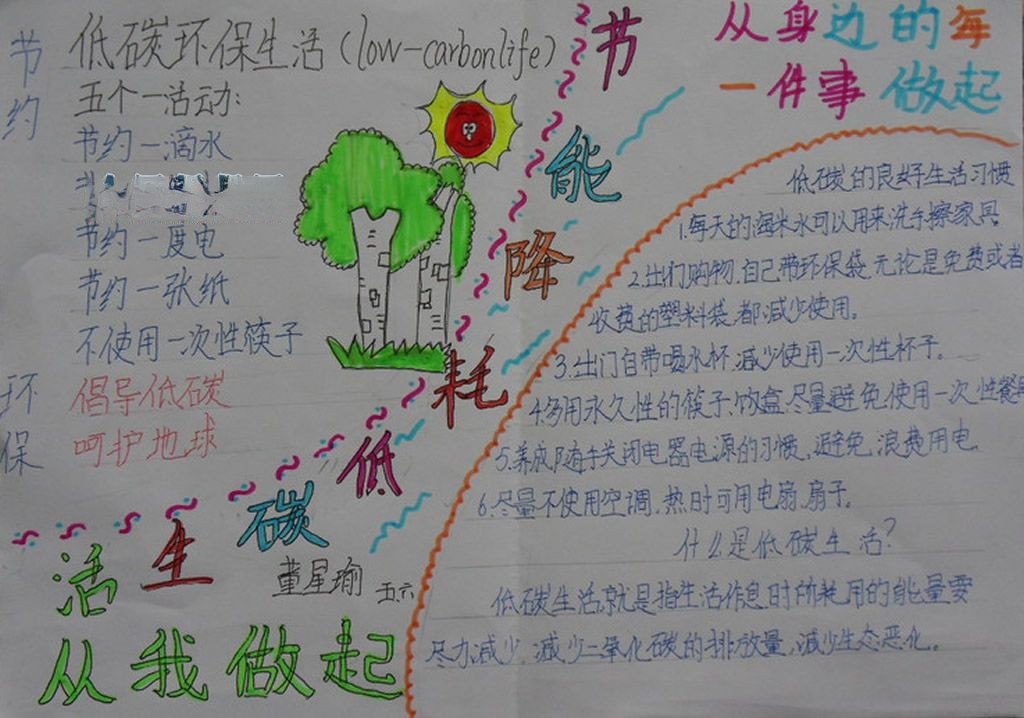 节约
环保
低碳环保生活(low-carbonlife)
五个一活动:
节约一滴水
节约一度电
节约一张纸
不使用一次性筷子
倡导低碳
呵护地球
节能降耗低碳生活
从我做起
董星瑜 五.六
从身边的每
一件事做起
低碳的良好生活习惯
1.每天的淘米水可以用来洗手擦家具
2.出们购物.自己带环保袋.无论是免费或者
收费的塑料袋.都减少使用。
3.出门自带喝水杯.减少使用一次性杯子。
4.多用永久性的筷子、饭盒.尽量避免使用一次性餐具
5.养成随手关闭电器电源的习惯,避免浪费用电.
6.尽量不使用空调.热时可用电扇.扇子。
什么是低碳生活?
低碳生活,就是指生活作息时所耗用的能量要
尽力减少.减少二氧化碳的排放量,减少生态恶化。